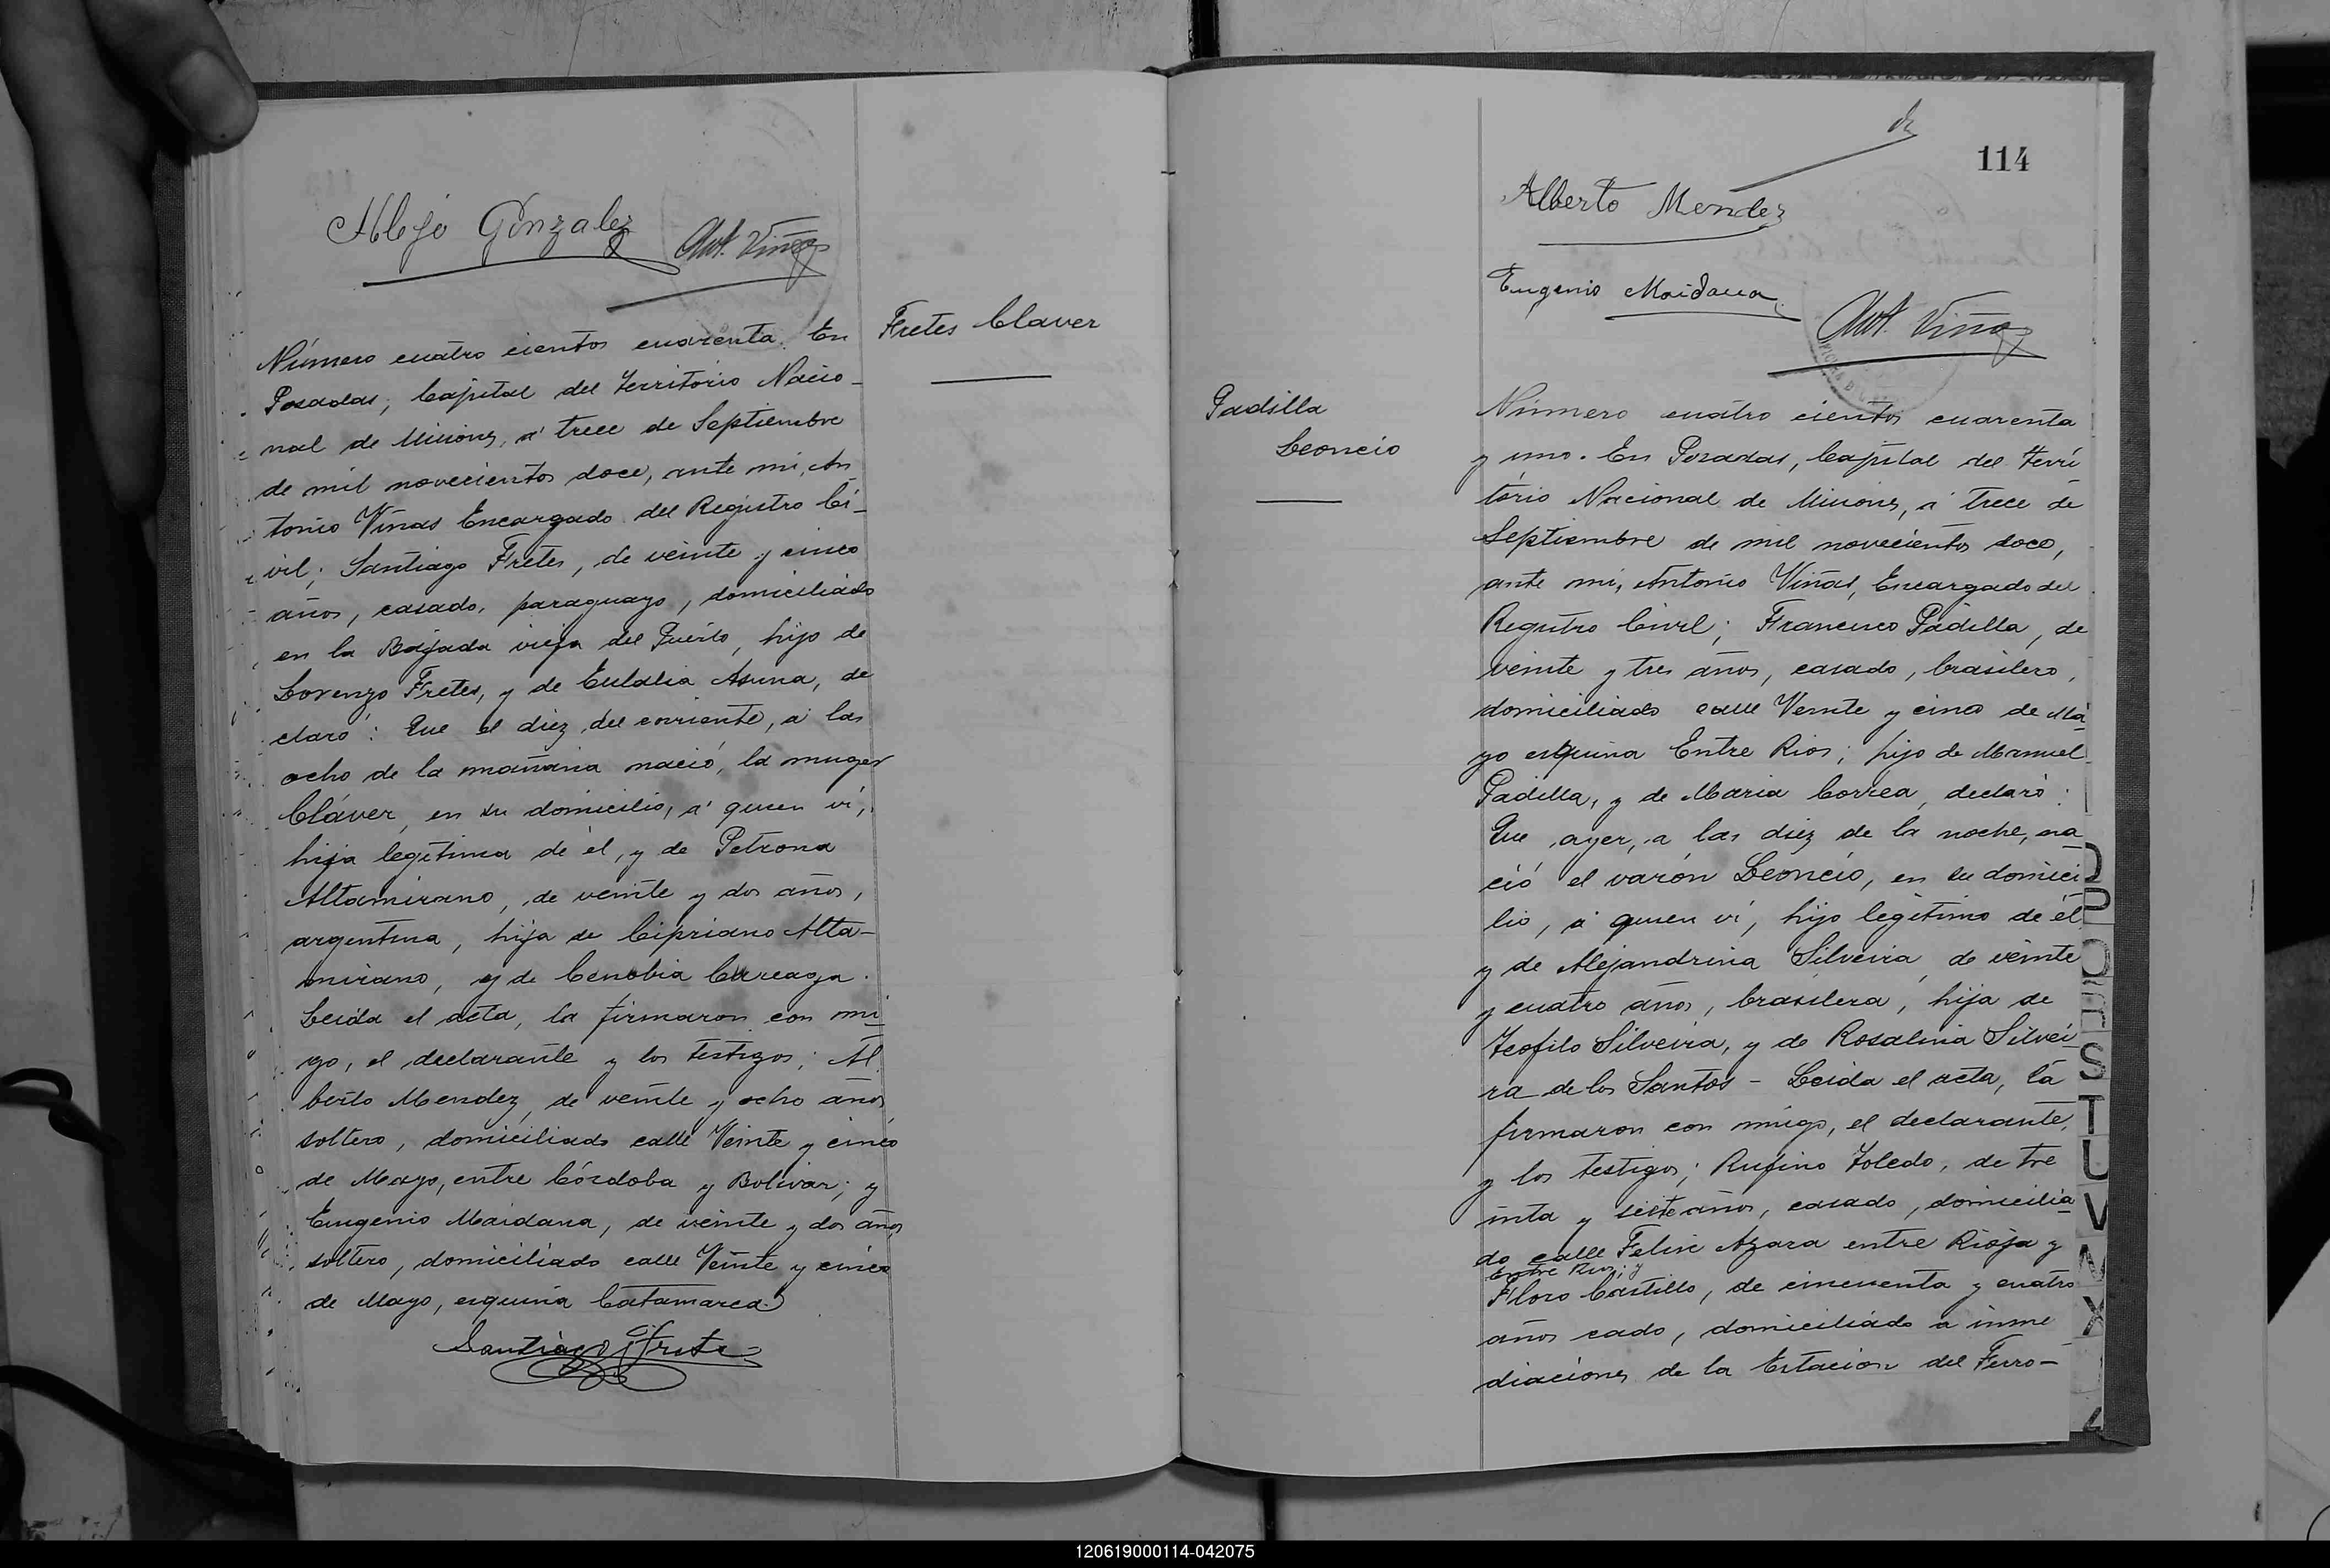 Alejo Gonzalez
Ant. Viñas
Número cuatro cientos cuarenta. En
Posadas, Capital del Territorio Nacio-
nal de Misiones, á trece de Septiembre
de mil novecientos doce, ante mi, An
tonio Viñas Encargado del Registro Ci-
vil; Santiago Fretes, de veinte y cinco
años, casado, paraguayo, domiciliado
en la Bajada vieja del Puerto, hijo de
Lorenzo Fretes, y de Eulalia Asuna, de
claró: Que el diez del corriente, á las
ocho de la mañana nació, la muger
Cláver, en su domicilio, á quien ví,
hija legítima de él, y de Petrona
Altamirano, de veinte y dos años,
argentina, hija de Cipriano Alta-
mirano, y de Cenobia Careaga.
Leida el acta, la firmaron con mi
go, el declarante y los testigos; Al
berto Mendez, de veinte y ocho años
soltero, domiciliado calle Veinte y cinco
de Mayo, entre Córdoba y Bolivar; y
Eugenio Maidana, de veinte y dos años
soltero, domiciliado calle Veinte y cinco
de Mayo, esquina Catamarca.
Santiago Frete
Fretes Claver
114
Alberto Mendez
Eugenio Maidana
Ant. Viñas
Padilla
Leoncio
Número cuatro cientos cuarenta
y uno. En Posadas, Capital del Terri
tório Nacional de Misiones, á trece de
Septiembre de mil novecientos doce,
ante mi, Antonio Viñas, Encargado del
Registro Civil; Francisco Padilla, de
veinte y tres años, casado, brasilero,
domiciliado calle Veinte y cinco de Ma
yo esquina Entre Rios; hijo de Manuel
Padilla, y de Maria Correa, declaró:
Que ayer, a las diez de la noche, na
ció el varón Leoncio, en su domici
lio, á quien ví, hijo legítimo de él
y de Alejandrina Silveira, de veinte
y cuatro años, brasilera, hija de
Teofilo Silveira, y de Rosalina Silvei
ra de los Santos - Leida el acta, la
firmaron con migo, el declarante,
y los testigos; Rufino Toledo, de tre
inta y siete años, casado, domicilia
do calle Felix Azara entre Rioja y
Entre Rios; y
Floro Castillo, de cincuenta y cuatro
años cado, domiciliado a inme
diaciones de la Estacion del Ferro-
S
T
U
V
X
120619000114-042075